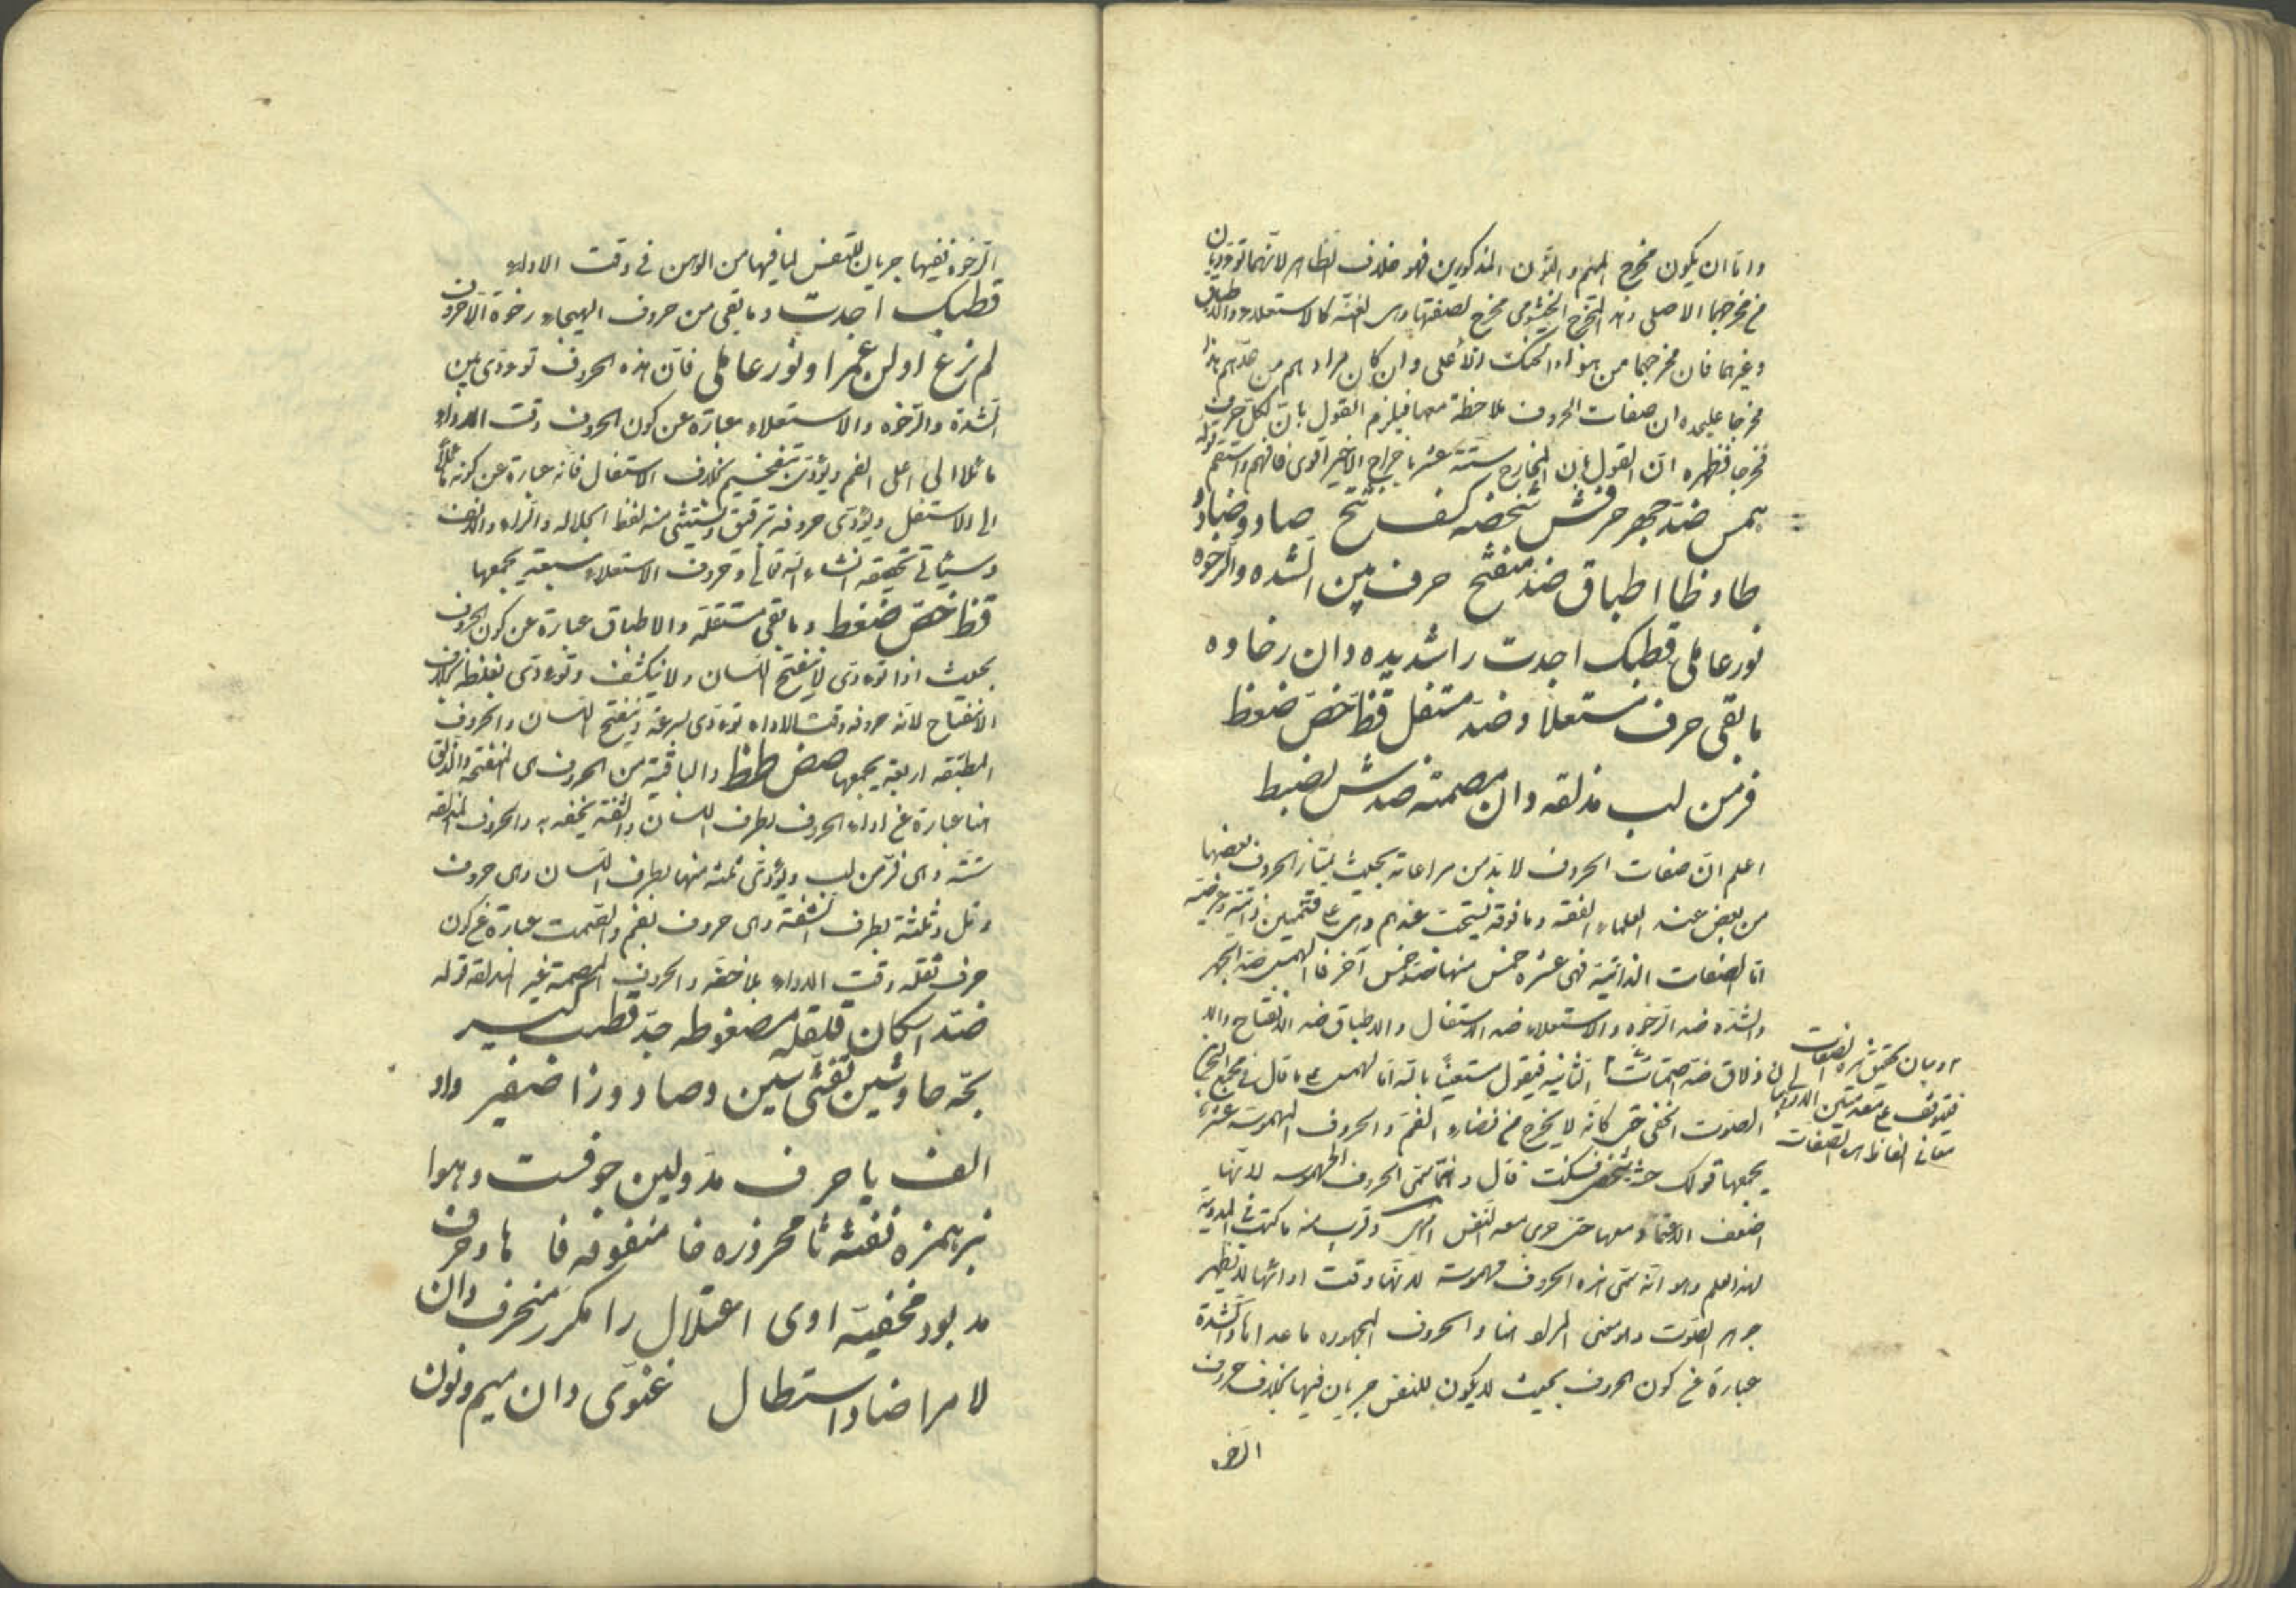 واما ان يكون مخرج الميم والنون المذكورين فهو خلاف الظاهر لانهما تؤديان
من مخرجهما الاصلى وهذا المخرج الخيشومى مخرج لصفتها وهى الغنة كالاستعلاء والاطباق
وغيرهما فان مخرجهما من هواء الحنك الاعلى وان كان مرادهم من عدهم هذا
مخرجا عليحده ان صفات الحروف ملاحظة معها فيلزم القول بان لكل حرف
مخرجا فظهر ان القول بان المخارج ستة عشر باخراج الاخير اقوى فافهم واستقم قوله
همس ضد جهر حرفش شخصه كسف تح صاد وضاد
طاء وظا اطباق ضد منفتح حرف بين الشده والرخوه
نورعاملى قطبك اجدت را شديده دان رخاوه
مابقى حرف مستعلا وضد مستفل قظ خص ضغط
فرمن لب مذلقه دان مصمته ضدش بضبط
اعلم ان صفات الحروف لا بد من مراعاته بحيث يمتاز الحروف بعضها
من بعض عند العلماء الفقه وما فوقه يستحب عندهم وهى على قسمين ذاتية وعرضية
اما الصفات الذاتية فهى عشرة خمس منها ضد خمس آخر فالهمس ضد الجهر
والشدة ضد الرخوه والاستعلاء ضد الاستفال والاطباق ضد الانفتاح والا
ذلاق ضد اصمات الثانية فيقول مستعينا بالله اما الهمس على ما قال فى مجمع البحرين
الصوت الخفى حتى كانه لا يخرج من فضاء الفم والحروف المهموسة عشرة
يجمعها قولك حثه شخص فسكت قال وانما سمى الحروف المهموسه لانها
اضعف الاعتماد معها حتى جرى معه النفس انتهى وقريب منه ما كتب فى المدونة
لهذا العلم وهو انه سمى هذه الحروف مهموسة لانها وقت ادائها لا تظهر
جوهر الصوت والحروف المجهوره ما عداها والشدة
عبارة عن كون الحروف بحيث لا يكون للنفس جريان فيها بخلاف حروف
الرخو
وبيان تحقيق هذه الصفات
فيتوقف على مقدمتين الاولى فى بيان
معانى الفاظ هذه الصفات
الرخوه ففيها جريان للنفس لما فيها من الوهن فى وقت الاداء
قطبك اجدت وما بقى من حروف الهجاء رخوة الا حروف
لم نرع او لن عمر او نورعاملى فان هذه الحروف تؤدى بين
الشدة والرخوه والاستعلاء عبارة عن كون الحروف وقت الاداء
مائلا الى اعلى الفم ويؤدى بتفخيم بخلاف الاستفال فانه عبارة عن كونه مائلا
الى الاسفل ويؤدى حروفه بترقيق ويستثنى منه لفظ الجلاله والراء والالف
وسيأتى تحقيقه انشاء الله تعالى وحروف الاستعلاء سبعة يجمعها
قظ خص ضغط وما بقى مستفله والاطباق عبارة عن كون الحروف
بحيث اذا تؤدى لا ينفتح اللسان ولا ينكشف وتؤدى بغلظة بخلاف
الانفتاح لانه حروفه وقت الاداء تؤدى بسرعة وينفتح اللسان والحروف
المطبقه اربعة يجمعها صض طظ والباقية من الحروف هى المنفتحة والذلق
هنا عبارة عن اداء الحروف بطرف اللسان والشفة بخفه والحروف المذلقة
ستة وهى فر من لب ويؤدى ثلثة منها بطرف اللسان وهى حروف
رنل وثلثة بطرف الشفة وهى حروف بفم والصمت عبارة عن كون
حرف ثقله وقت الاداء بلا خفة والحروف المصمتة غير المذلقة قوله
ضد اسكان قلقله مضغوطه جد قطب
بحه حا وشين تفشى سين وصاد وزا صفير واو
الف يا حرف مد ولين جوفست وهوا
نبر همزه نفثه ثا محرزه خا منفوخه فا ها و حرف
مد بود مخفيه اوى اعتلال را مكرر منحرف دان
لا مرا ضاد استطال غنوى دان ميم ونون